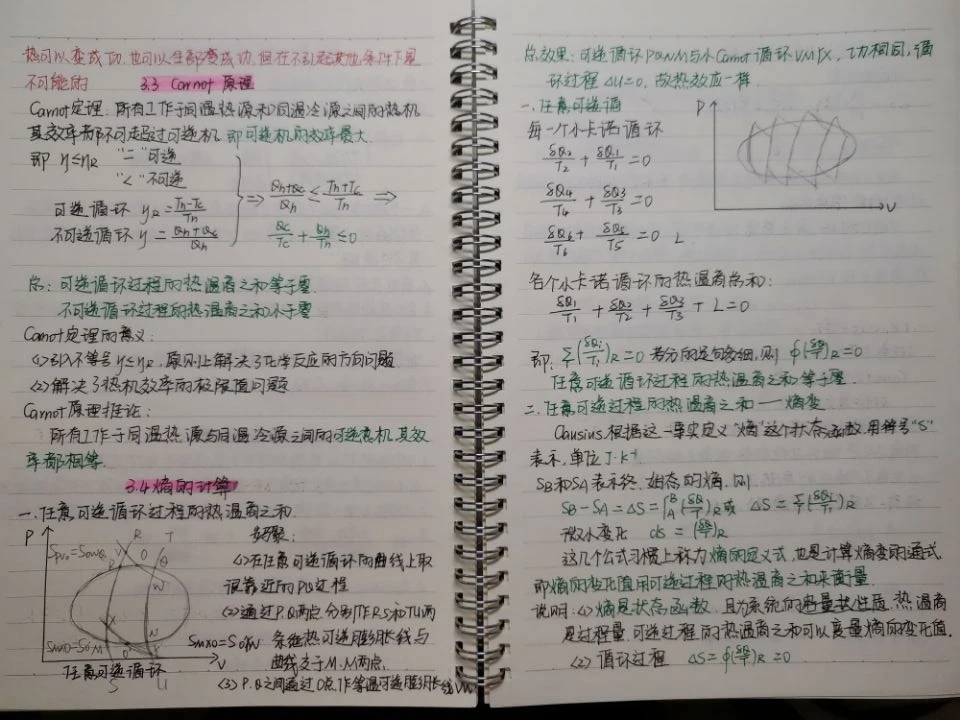 热可以变成功,也可以全部变成功,但在不引起其他条件下是
不可能的
3.3 Carnot 原理
Carnot定理:所有工作于同温热源和同温冷源之间的热机
其效率都不可超过可逆机,即可逆机的效率最大.
即 η≤ηR "=" 可逆
"<" 不可逆
可逆循环 ηR = (Th-Tc)/Th
不可逆循环 η = (Qh+Qc)/Qh
⇒ (Qh+Qc)/Qh ≤ (Th+Tc)/Th ⇒
Qc/Tc + Qh/Th ≤0
总:可逆循环过程的热温商之和等于零
不可逆循环过程的热温商之和小于零
Carnot定理的意义:
(1)引入不等号η≤ηR,原则上解决了化学反应的方向问题
(2)解决了热机效率的极限值问题
Carnot原理推论:
所有工作于同温热源与同温冷源之间的可逆热机,其效
率都相等.
3.4 熵的计算
一.任意可逆循环过程的热温商之和.
P
R T
V O Q
W
X
N
M
S U
V
任意可逆循环
步骤:
(1)在任意可逆循环的曲线上取
很靠近的PQ过程
(2)通过P.Q两点分别作RS和TU两
条绝热可逆膨胀线与
曲线交于M.N两点.
(3)P.Q之间通过O点作等温可逆膨胀线VW
总效果:可逆循环PQNM与小Carnot循环VWYX,功相同,循
环过程 ΔU=0,故热效应一样.
一.任意可逆循
每一个小卡诺循环
P
V
δQ2/T2 + δQ1/T1 =0
δQ4/T4 + δQ3/T3 =0
δQ6/T6 + δQ5/T5 =0 L
各个小卡诺循环的热温商总和:
δQ1/T1 + δQ2/T2 + δQ3/T3 + L =0
即:Σ(δQi/Ti)R =0 若分的足够多细,则 ∮(δQ/T)R =0
任意可逆循环过程的热温商之和等于零.
二.任意可逆过程的热温商之和 — 熵变
Clausius 根据这一事实定义"熵"这个状态函数.用符号"S"
表示,单位J·K⁻¹
SB和SA表示终、始态的熵,则
SB-SA=ΔS=∫_A^B(δQ/T)R 或 ΔS=Σ(δQi/Ti)R
微小变化 dS=(δQ/T)R
这几个公式习惯上称为熵的定义式,也是计算熵变的通式
即熵的变化值用可逆过程的热温商之和来衡量.
说明:(1)熵是状态函数,且为系统的容量性质.热温商
是过程量,可逆过程的热温商之和可以度量熵的变化值.
(2)循环过程 ΔS=∮(δQ/T)R =0